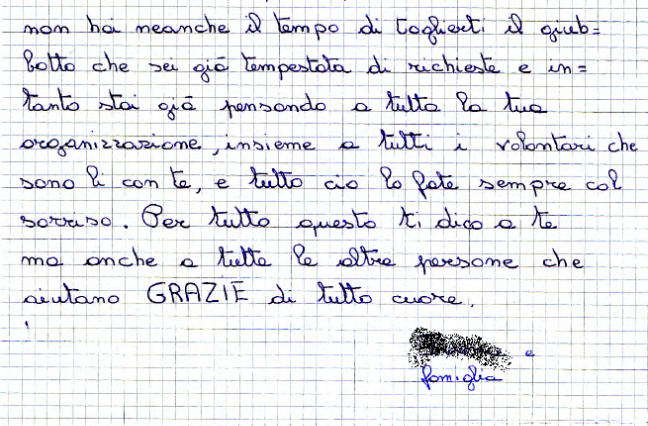 non hai neanche il tempo di toglierti il giub=
botto che sei già tempestata di richieste e in=
tanto stai già pensando a tutta la tua
organizzazione, insieme a tutti i volontari che
sono lì con te, e tutto ciò lo fate sempre col
sorriso. Per tutto questo ti dico a te
ma anche a tutte le altre persone che
aiutano GRAZIE di tutto cuore.
e
famiglia